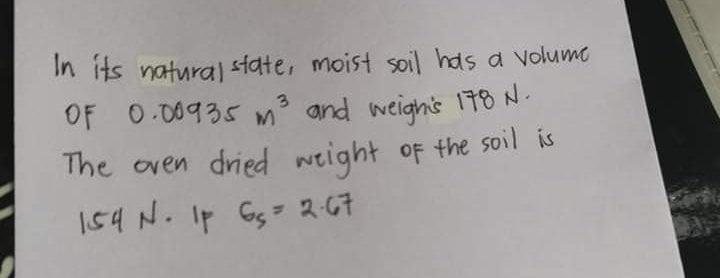 In its natural state, moist soil has a volume
OF 0.00935 m³ and weighs 178 N.
The oven dried weight OF the soil is
154 N. IF Gs = 2.67